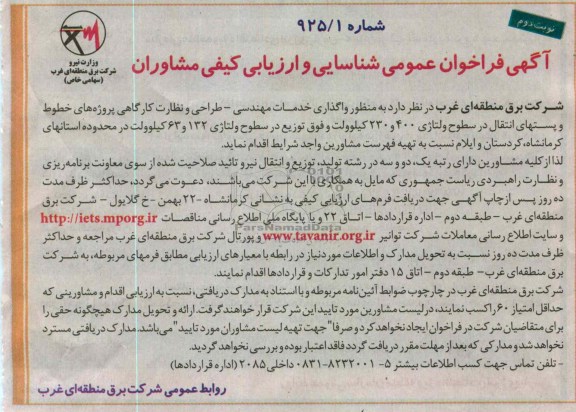 نوبت دوم
شماره ۹۲۵/۱
وزارت نیرو
شرکت برق منطقه‌ای غرب
(سهامی خاص)
آگهی فراخوان عمومی شناسایی و ارزیابی کیفی مشاوران
شرکت برق منطقه‌ای غرب در نظر دارد به منظور واگذاری خدمات مهندسی - طراحی و نظارت کارگاهی پروژه‌های خطوط
و پستهای انتقال در سطوح ولتاژی ۴۰۰ و ۲۳۰ کیلوولت و فوق توزیع در سطوح ولتاژی ۱۳۲ و ۶۳ کیلوولت در محدوده استانهای
کرمانشاه، کردستان و ایلام نسبت به تهیه فهرست مشاورین واجد شرایط اقدام نماید.
لذا از کلیه مشاورین دارای رتبه یک، دو و سه در رشته تولید، توزیع و انتقال نیرو تائید صلاحیت شده از سوی معاونت برنامه‌ریزی
و نظارت راهبردی ریاست جمهوری که مایل به همکاری با این شرکت می‌باشند، دعوت می‌گردد، حداکثر ظرف مدت
ده روز پس از چاپ آگهی جهت دریافت فرم‌های ارزیابی کیفی به نشانی کرمانشاه - ۲۲ بهمن - خ گلایول - شرکت برق
منطقه‌ای غرب - طبقه دوم - اداره قراردادها - اتاق ۲۲ و یا پایگاه ملی اطلاع رسانی مناقصات http://iets.mporg.ir
و سایت اطلاع رسانی معاملات شرکت توانیر www.tavanir.org.ir و پورتال شرکت برق منطقه‌ای غرب مراجعه و حداکثر
ظرف مدت ده روز نسبت به تحویل مدارک و اطلاعات مورد نیاز در رابطه با معیارهای ارزیابی مطابق فرمهای مربوطه، به شرکت
برق منطقه‌ای غرب - طبقه دوم - اتاق ۱۵ دفتر امور تدارکات و قراردادها اقدام نمایند.
شرکت برق منطقه‌ای غرب در چارچوب ضوابط آئین‌نامه مربوطه و با استناد به مدارک دریافتی، نسبت به ارزیابی اقدام و مشاورینی که
حداقل امتیاز ۶۰ را کسب نمایند، در لیست مشاورین مورد تایید این شرکت قرار خواهند گرفت. ارائه و تحویل مدارک هیچگونه حقی را
برای متقاضیان شرکت در فراخوان ایجاد نخواهد کرد و صرفا "جهت تهیه لیست مشاوران مورد تایید" می‌باشد. مدارک دریافتی مسترد
نخواهد شد و مدارکی که بعد از مهلت مقرر دریافت گردد فاقد اعتبار بوده و بررسی نخواهد گردید.
- تلفن تماس جهت کسب اطلاعات بیشتر ۵-۸۲۳۲۰۰۱-۰۸۳۱ داخلی ۲۰۸۵ (اداره قراردادها)
روابط عمومی شرکت برق منطقه‌ای غرب